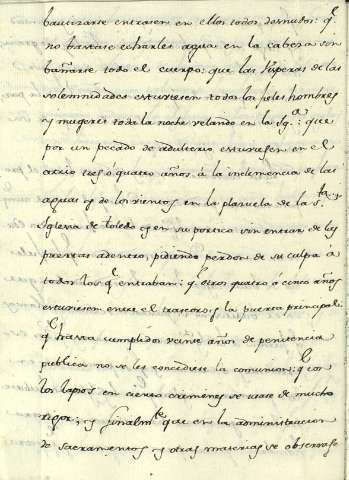 bautizarse entrasen en ellos todos desnudos: q.e
no bastase echarles agua en la cabeza sin
bañarse todo el cuerpo: que las visperas de las
solemnidades estuviesen todos los fieles hombres
y mugeres toda la noche velando en la Yg.a: que
por un pecado de adulterio estuviesen en el
atrio tres ó quatro años, á la inclemencia de las
aguas y de los vientos en la plazuela de la S.ta
Iglesia de toledo y en su portico sin entrar de las
puertas adentro, pidiendo perdon de su culpa á
todos los q.e entraban: q.e otros quatro ó cinco años
estuviesen entre el trascoro, y la puerta principal:
q.e hasta cumplidos veinte años de penitencia
publica no se les concediese la comunion: q.e con
los lapsos en ciertos crimenes se usase de mucho
rigor, y finalm.te que en la administracion
de sacramentos y otras materias se observase